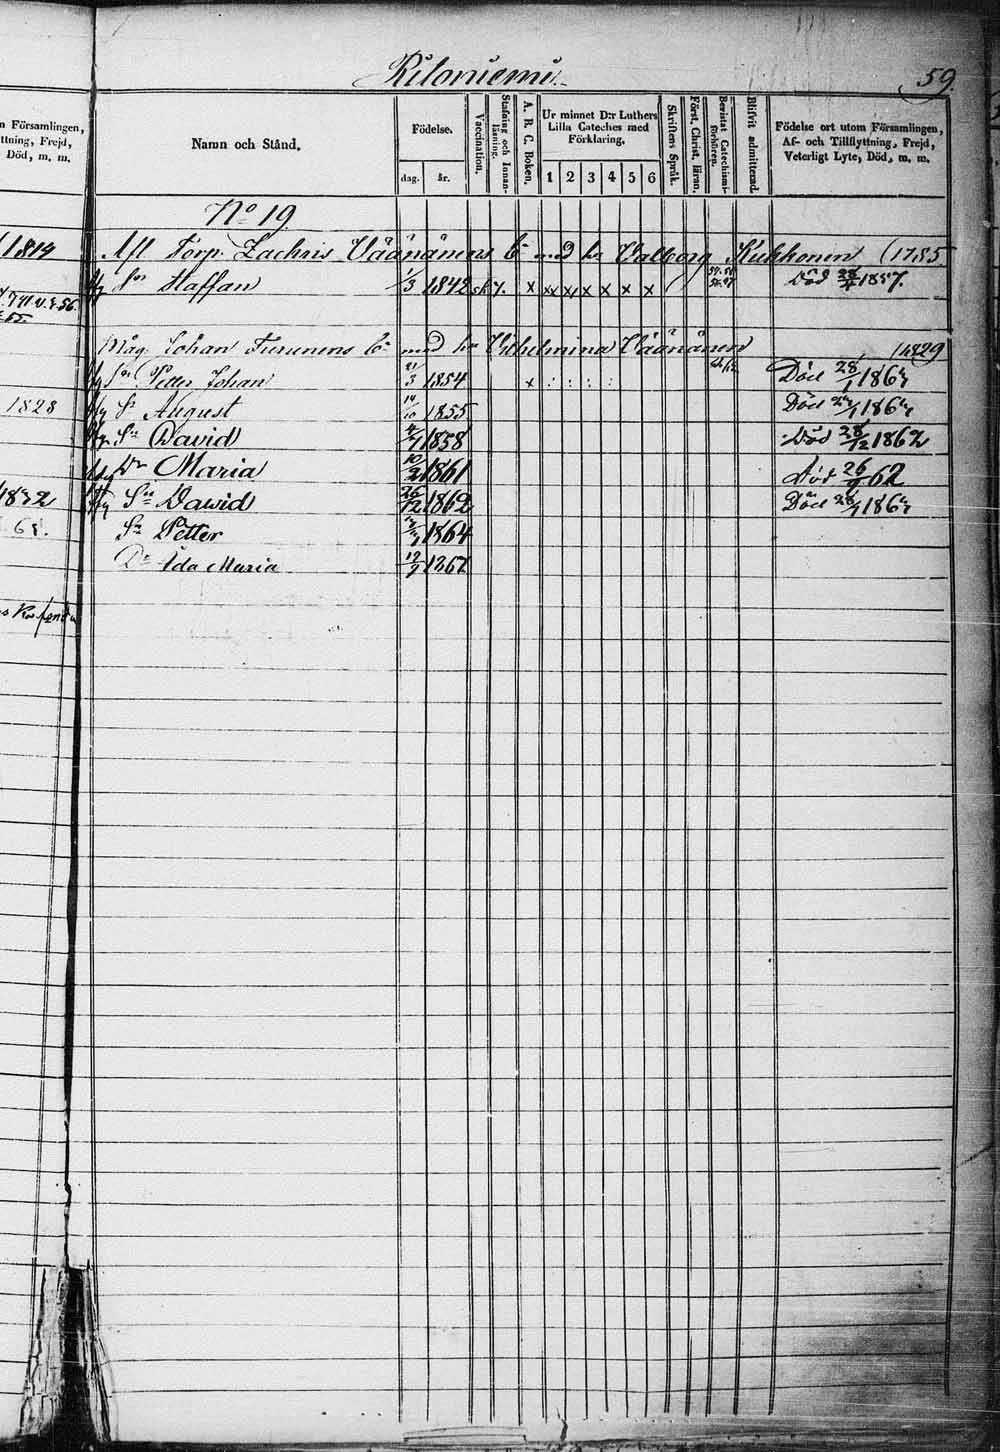 Ritoniemi
59.
n Församlingen,
ttning, Frejd,
Död, m. m.
Namn och Stånd.
Födelse.
dag. år.
Vaccination.
Stafning och Innan-
läsning.
A. B. C. Boken.
Ur minnet D:r Luthers
Lilla Cateches med
Förklaring.
1 2 3 4 5 6
Skriftens Språk.
Först. Christ. läran.
Bevistat Catechismi-
förhören.
Blifvit admitterad.
Födelse ort utom Församlingen,
Af- och Tillflyttning, Frejd,
Veterligt Lyte, Död, m. m.
No 19
1814
Afl Torp. Zachris Väänänens med Valborg Kukkonen (1785
Sn Staffan 1/3 1842 x xx x x x x x Död 1857.
Måg Johan Turunens med Vilhelmina Väänänen 1829
Sn Petter Johan 21/3 1854 x : : : : Död 28/1
1828
Sn August 14/10 1855 Död
Sn David 1858 Död 28/12 1862
Dr Maria 10/2 1861 Död 26/9 62
1832
Sn David 26/12 1862 Död
Sn Petter 1864
Dr Ida Maria 12/9 1867